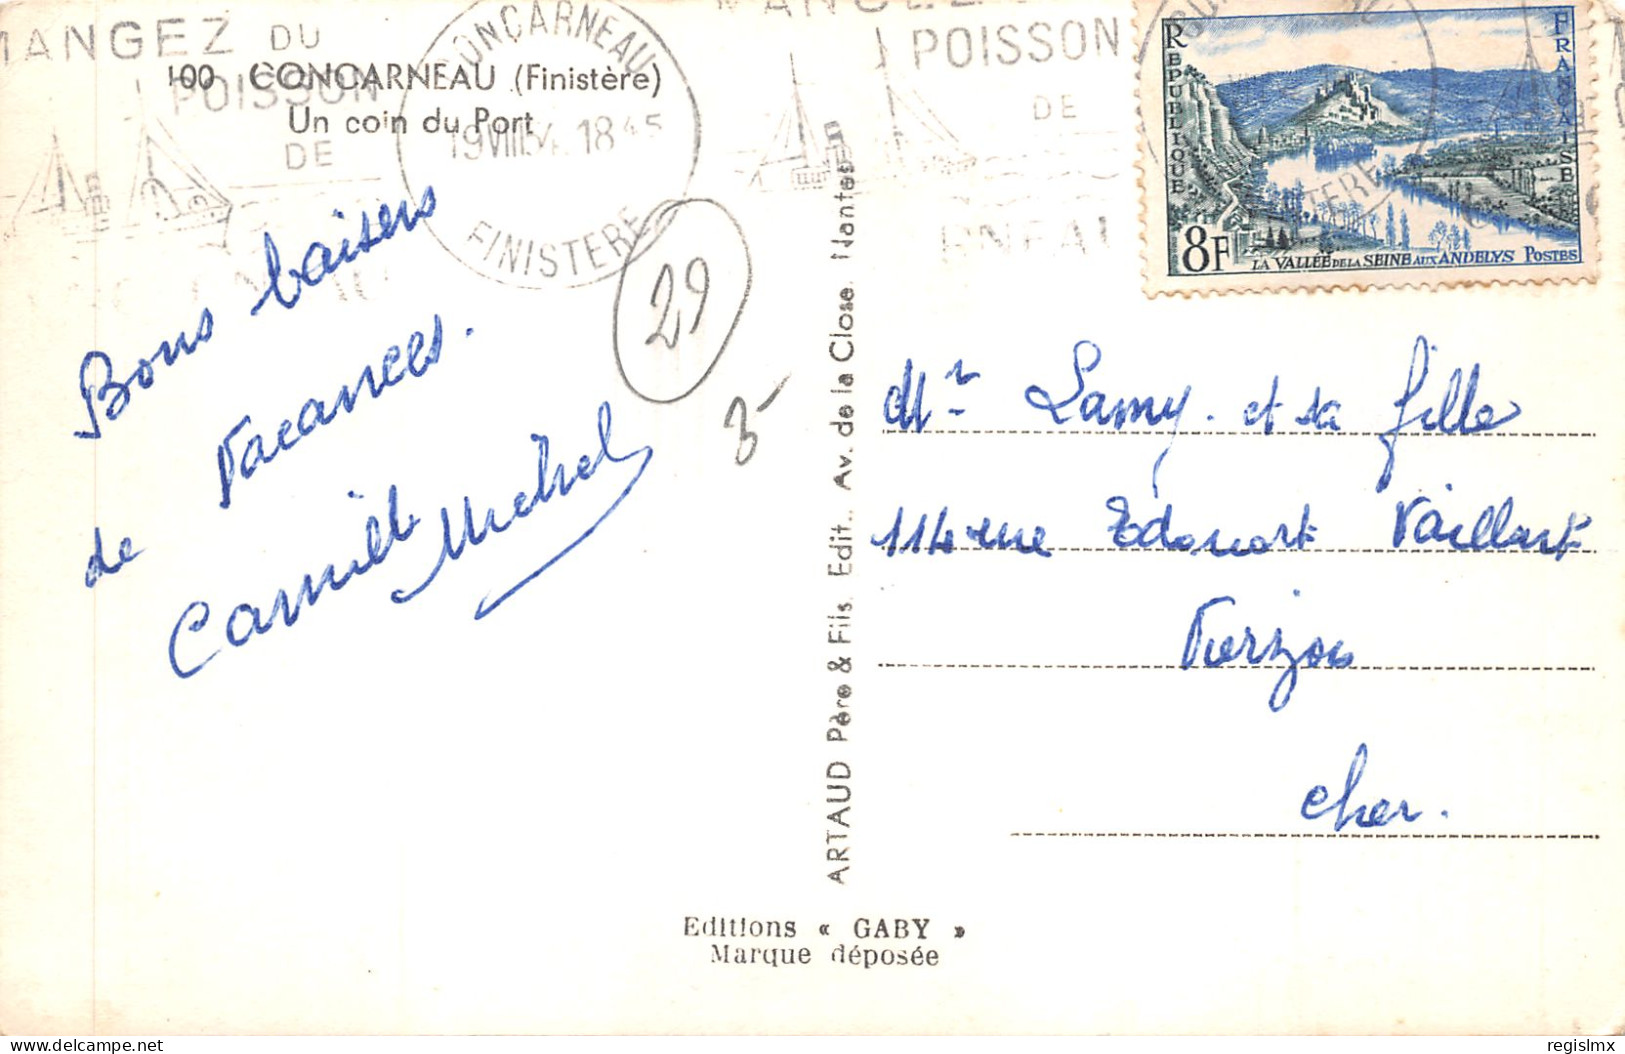 MANGEZ DU
POISSON
DE
CONCARNEAU
19 VIII 54. 18 45
FINISTERE
POISSON
DE
RNEAU
100 CONCARNEAU (Finistère)
Un coin du Port
REPUBLIQUE
FRANÇAISE
8F
LA VALLÉE DE LA SEINE AUX ANDELYS POSTES
Bons baisers
de Vacances.
Camille Michel
29
3-
ARTAUD Père & Fils. Edit., Av. de la Close, Nantes
Mr Lamy. et sa fille
114 rue Edouart Vaillart
Vierzon
Cher.
Editions « GABY »
Marque déposée
regislmx
delcampe.net